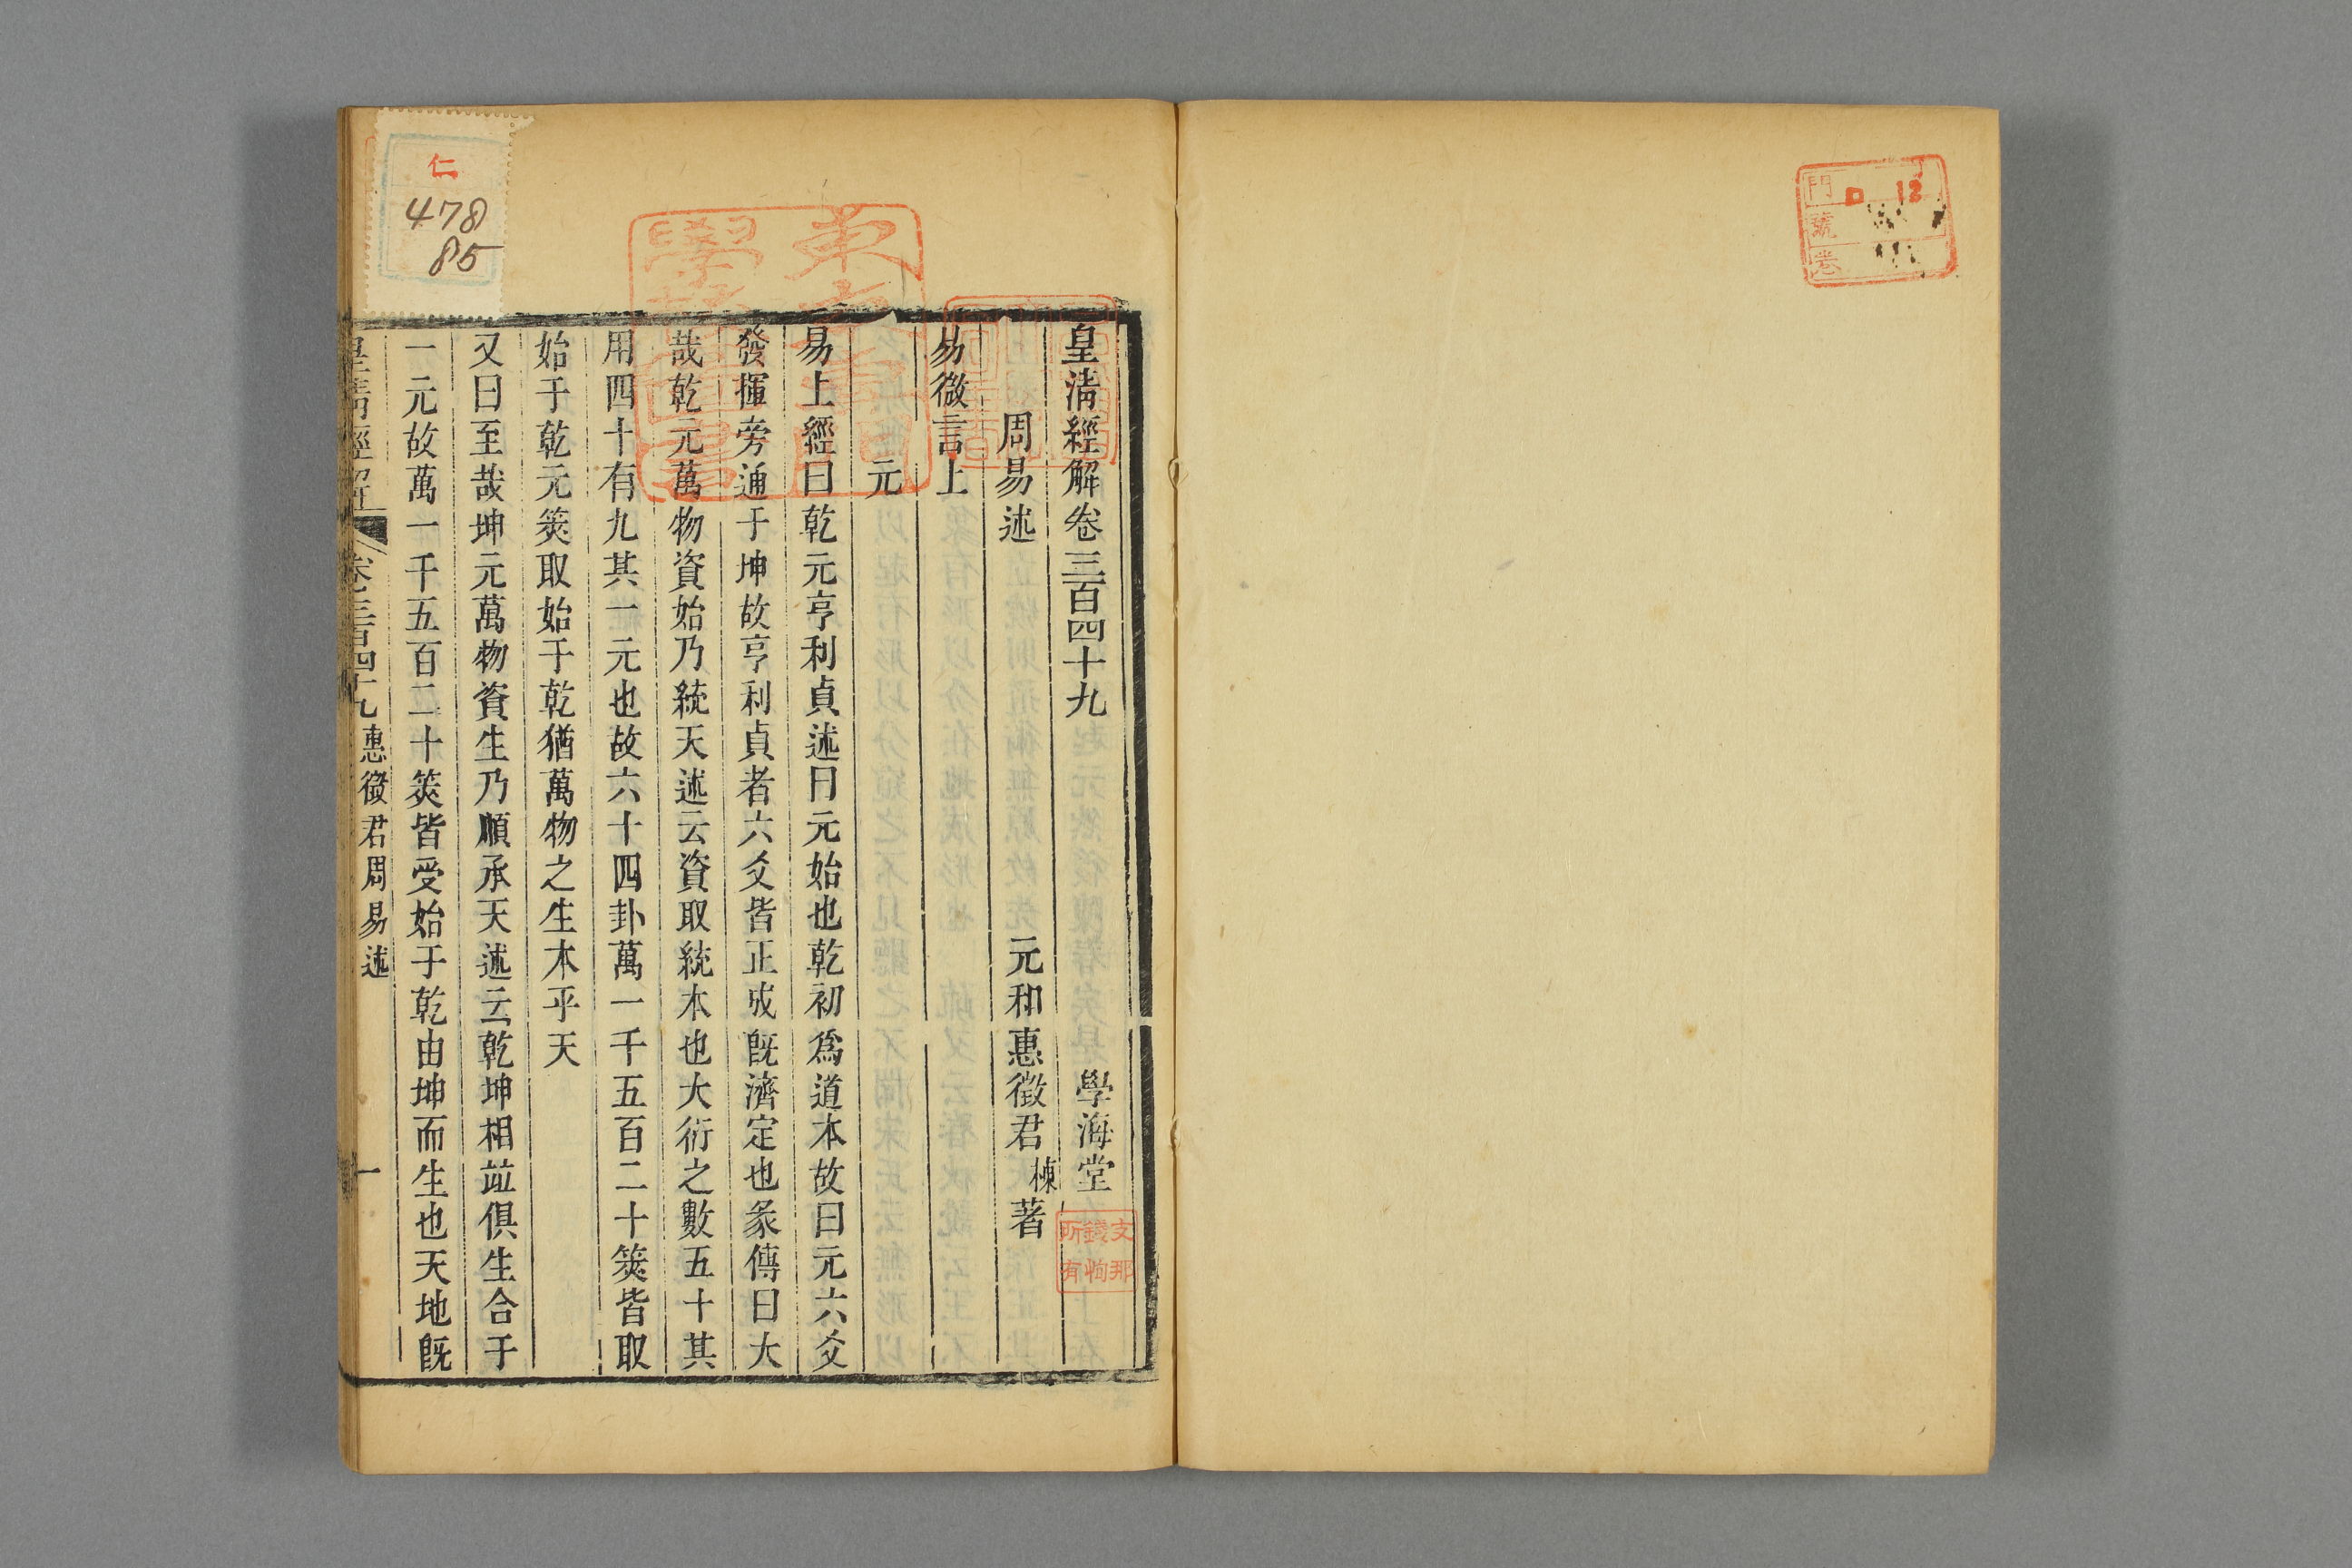 皇清經解卷三百四十九 學海堂
周易述 元和惠徵君棟著
易微言上
元
易上經曰乾元亨利貞述曰元始也乾初爲道本故曰元六爻
發揮旁通于坤故亨利貞者六爻皆正成旣濟定也彖傳曰大
哉乾元萬物資始乃統天述云資取統本也大衍之數五十其
用四十有九其一元也故六十四卦萬一千五百二十筴皆取
始于乾元筴取始于乾猶萬物之生本乎天
又曰至哉坤元萬物資生乃順承天述云乾坤相竝俱生合于
一元故萬一千五百二十筴皆受始于乾由坤而生也天地旣
皇清經解 卷三百四十九 惠徵君周易述 一
支那
錢恂
所有
仁
478
85
門 口 12
號
卷